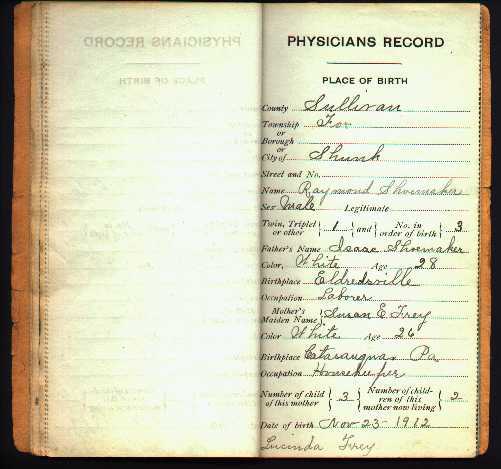 PHYSICIANS RECORD
PLACE OF BIRTH
County Sullivan
Township Fox
or
Borough
or
City of Shunk
Street and No.
Name Raymond Shoemaker
Sex Male Legitimate
Twin, Triplet or other } 1 { and { No. in order of birth } 3
Father's Name Isaac Shoemaker
Color, White Age 28
Birthplace Eldredsville
Occupation Laborer
Mother's Maiden Name } Susan E. Frey
Color White Age 26
Birthplace Catasauqua, Pa
Occupation Housekeeper
Number of child of this mother } 3 { Number of child-ren of this mother now living } 2
Date of birth Nov 23-1912
Lucinda Frey